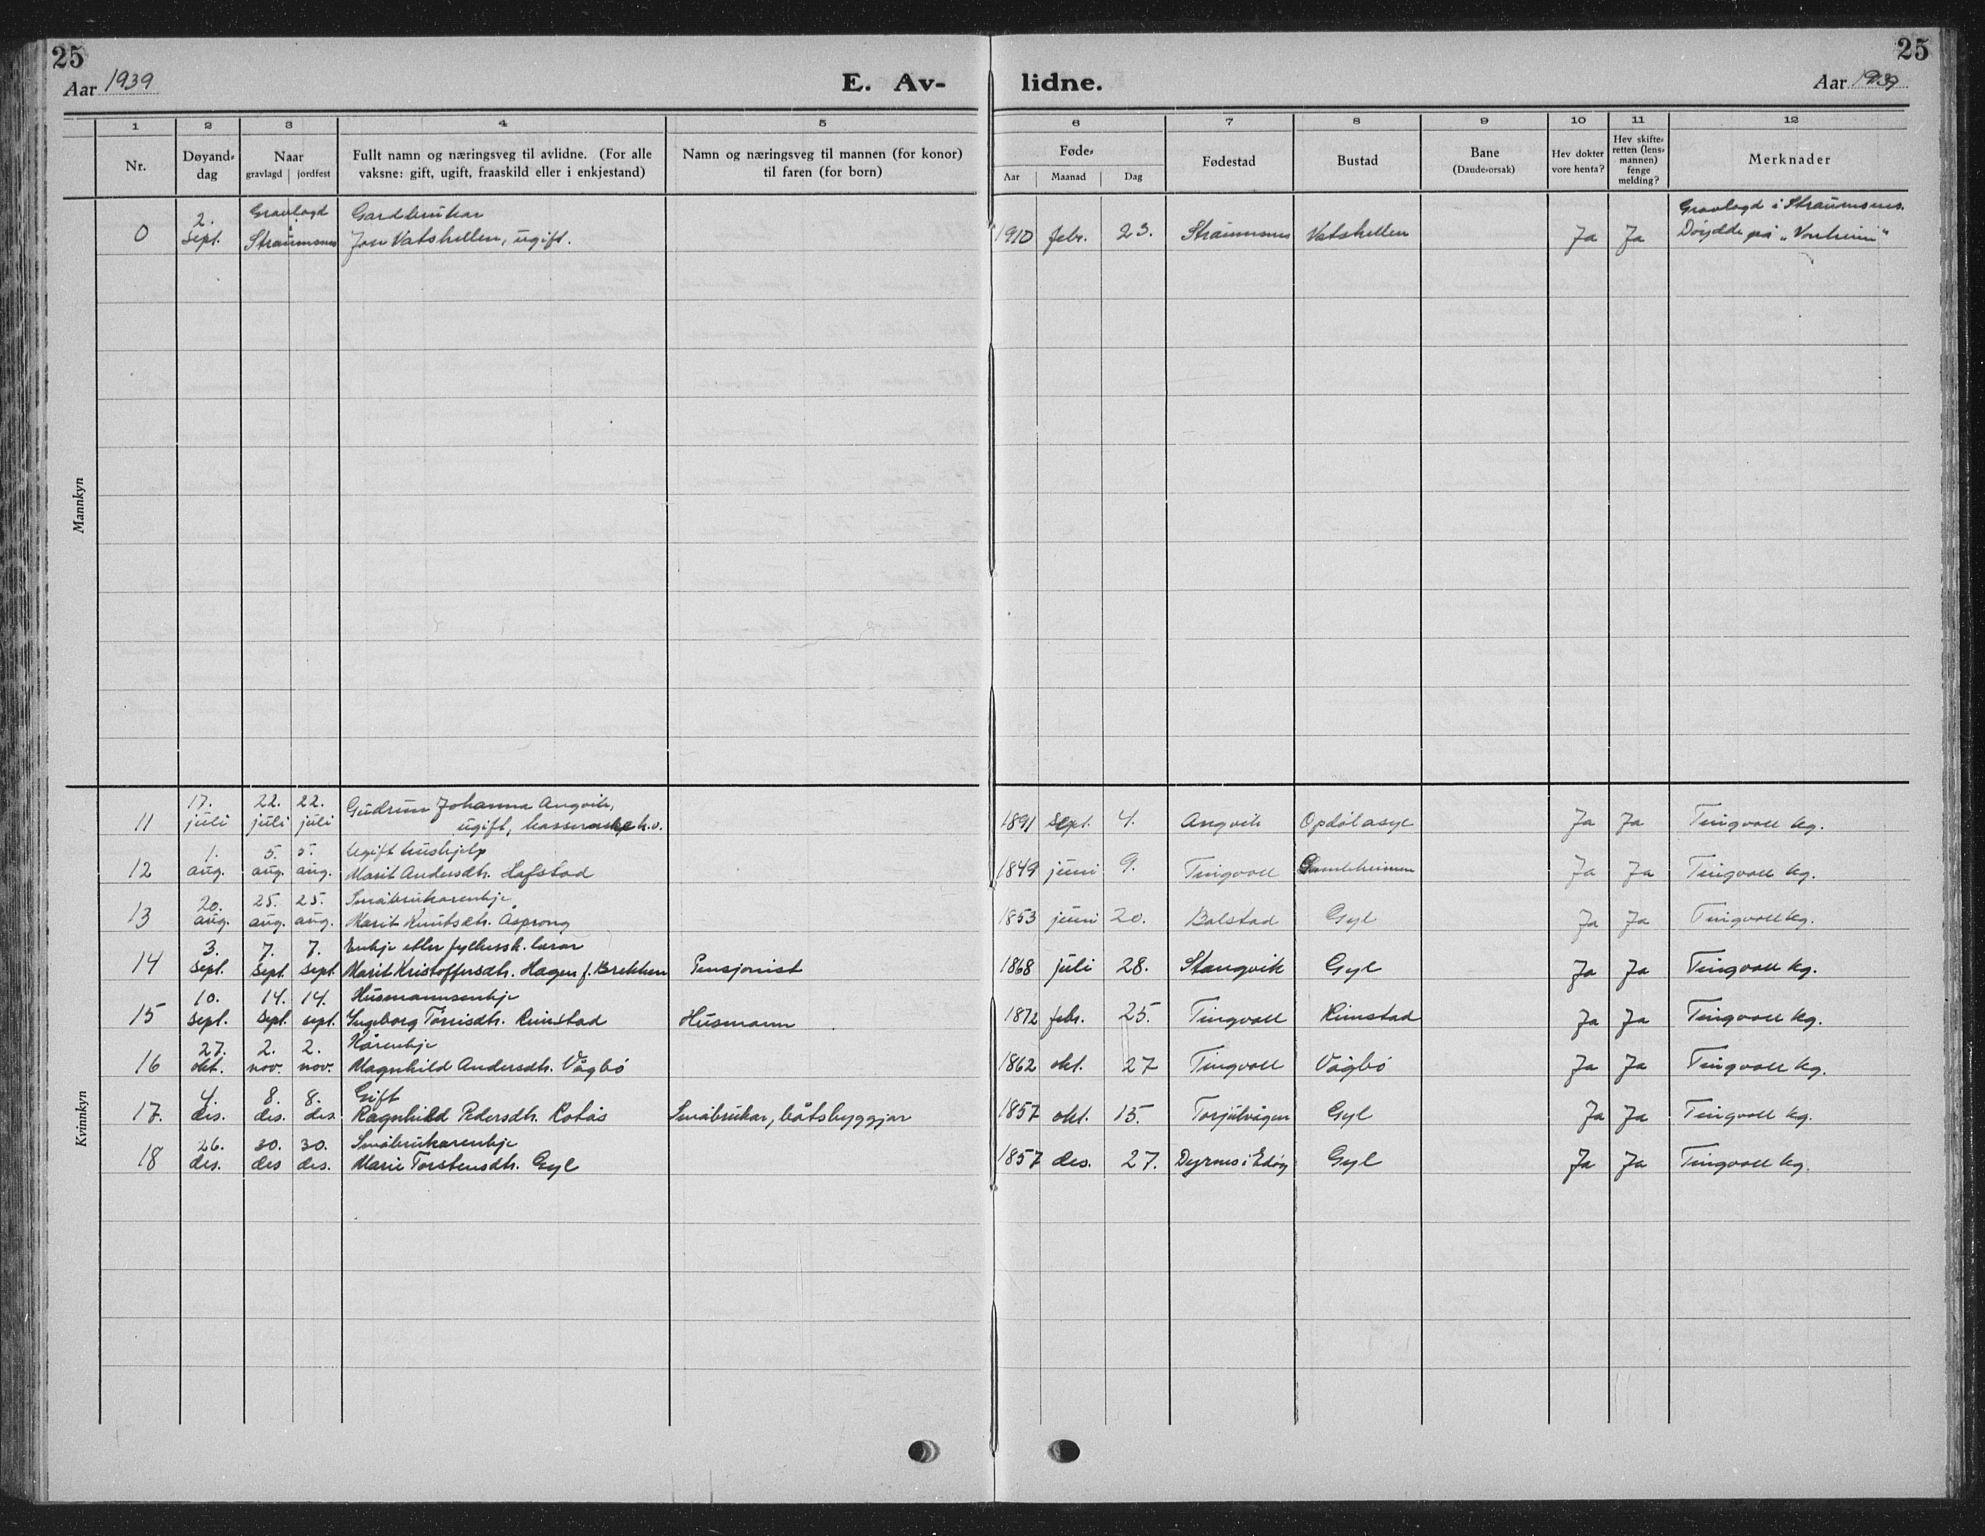 25
25
Aar 1939
E. Av-
lidne.
Aar 1939
1 2 3 4 5 6 7 8 9 10 11 12
Nr.
Døyand-
dag
Naar
gravlagd | jordfest
Fullt namn og næringsveg til avlidne. (For alle
vaksne: gift, ugift, fraaskild eller i enkjestand)
Namn og næringsveg til mannen (for konor)
til faren (for born)
Føde-
Aar Maanad Dag
Fødestad
Bustad
Bane
(Daude-orsak)
Hev dokter
vore henta?
Hev skifte-
retten (lens-
mannen)
fenge
melding?
Merknader
Mannkyn
2. Gravlagd Gardbrukar Gravlagd i Straumsnes.
0 sept. i Straumsnes Jon Vatshellen, ugift. 1910 febr. 23. Straumsnes Vatshellen Ja Ja Døydde på "Vonheim"
Kvinnkyn
17. 22. 22. Gudrun Johanna Angvik,
11 juli juli juli ugift, 1891 sept. 4. Angvik Opdøl asyl Ja Ja Tingvoll kg.
1. 5. 5. Ugift hushjelp
12 aug. aug. aug. Marit Andersdtr. Hafstad 1849 juni 9. Tingvoll Gamleheimen Ja Ja Tingvoll kg.
20. 25. 25. Småbrukarenkje
13 aug. aug. aug. Marit Knutsdtr. Åsprong 1853 juni 20. Bolstad Gyl Ja Ja Tingvoll kg.
3. 7. 7. Enkje etter fylkessk. lærar
14 sept. sept. sept. Marit Kristoffersdtr. Hagen f. Brekken Pensjonist 1868 juli 28. Stangvik Gyl Ja Ja Tingvoll kg.
10. 14. 14. Husmannsenkje
15 sept. sept. sept. Ingeborg Tørrisdtr. Rimstad Husmann 1872 febr. 25. Tingvoll Rimstad Ja Ja Tingvoll kg.
27. 2. 2. Kårenkje
16 okt. nov. nov. Magnhild Andersdtr. Vågbø 1862 okt. 27 Tingvoll Vågbø Ja Ja Tingvoll kg.
4. 8. 8. Gift
17. des. des. des Ragnhild Pedersdtr. Rotås Småbrukar, båtsbyggjar 1857 okt. 15. Torjulvågen Gyl Ja Ja Tingvoll kg.
26. 30. 30. Småbrukarenkje
18 des. des des. Marie Torstensdtr. Gyl 1857 des. 27. Dyrnes i Edøy Gyl Ja Ja Tingvoll kg.